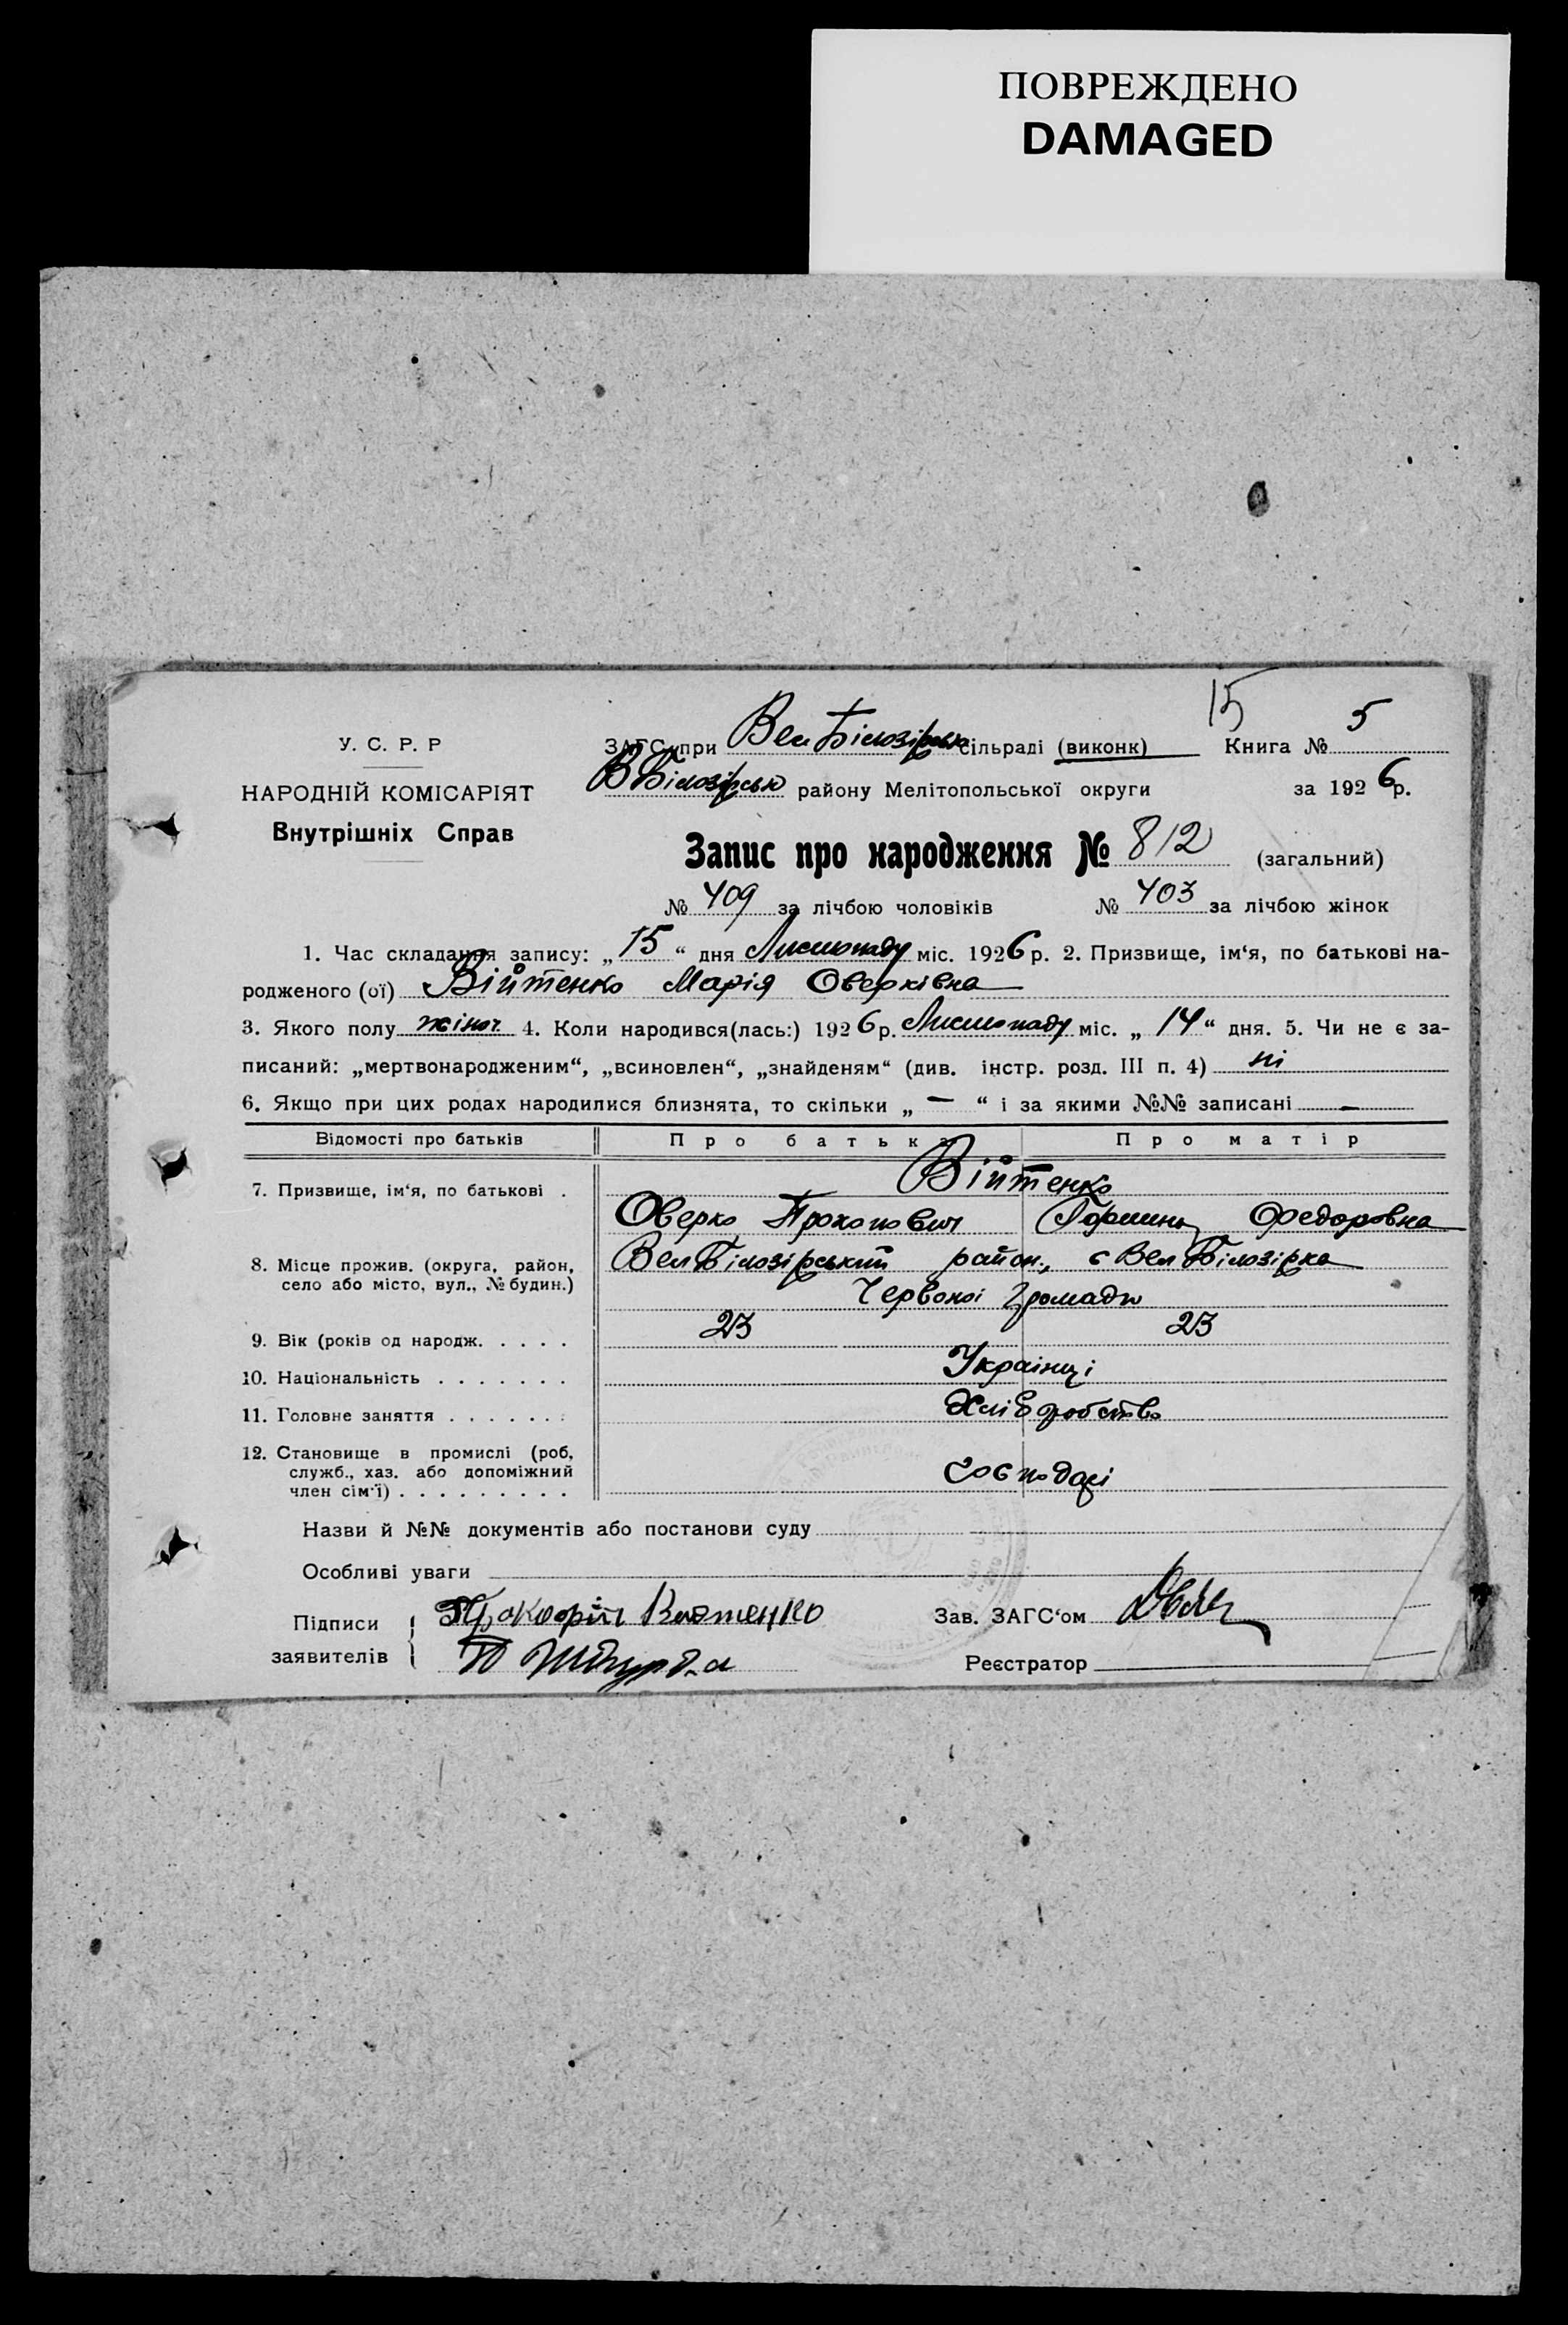 ПОВРЕЖДЕНО
DAMAGED
15
У. С. Р. Р
НАРОДНІЙ КОМІСАРІЯТ
Внутрішніх Справ
ЗАГС при Вел Білозірськ сільраді (виконк) Книга № 5
В Білозірськ району Мелітопольської округи за 1926 р.
Запис про народження № 812 (загальний)
№ 409 за лічбою чоловіків № 403 за лічбою жінок
1. Час складання запису: „15“ дня Листопаду міс. 1926 р. 2. Призвище, ім‘я, по батькові на-
родженого (ої) Війтенко Марія Оверківна
3. Якого полу жіноч 4. Коли народився(лась:) 1926 р. Листопаду міс. „14“ дня. 5. Чи не є за-
писаний: „мертвонародженим“, „всиновлен“, „знайденям“ (див. інстр. розд. III п. 4) ні
6. Якщо при цих родах народилися близнята, то скільки „—“ і за якими №№ записані —
Відомості про батьків Про батька Про матір
7. Призвище, ім‘я, по батькові . Війтенко
Оверко Прокопович Федоровна
8. Місце прожив. (округа, район, село або місто, вул., № будин.) Вел Білозірський район, с Вел Білозірка
Червоної Громади
9. Вік (років од народж. . . . . 23 23
10. Національність . . . . . . . Українці
11. Головне заняття . . . . . . . Хліборобство
12. Становище в промислі (роб, служб., хаз. або допоміжний член сім‘ї) . . . . . . . . . Господарі
Назви й №№ документів або постанови суду
Особливі уваги
Підписи заявителів Війтенко
Зав. ЗАГС‘ом
Реєстратор